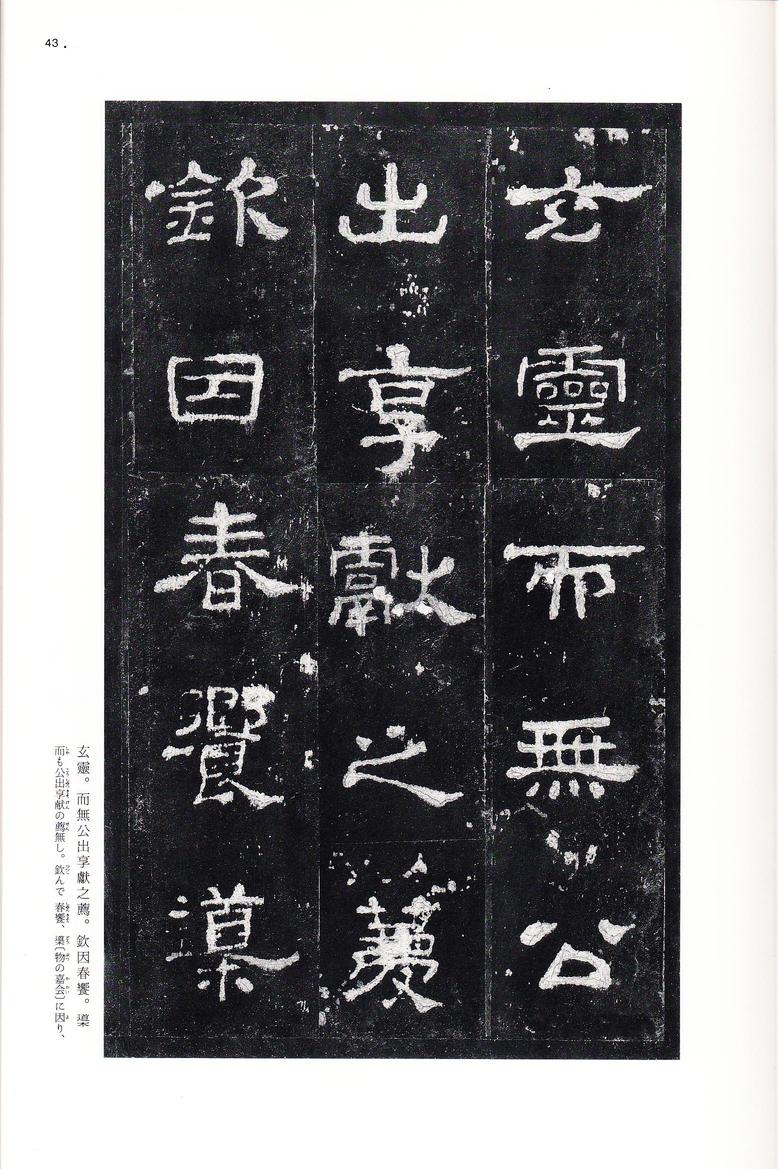 43.
玄靈而無公
出享獻之薦
欽因春饗
玄靈。而無公出享獻之薦。欽因春饗。
而も公出享献の薦無し。欽んで 春饗、〔物の嘉会〕に因り、